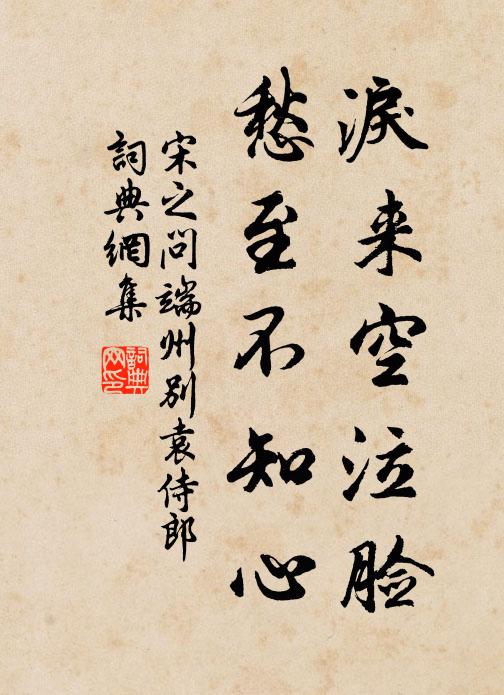 淚来空泣脸
愁至不知心
宋之问端州别袁侍郎
词典網集
詞典网印